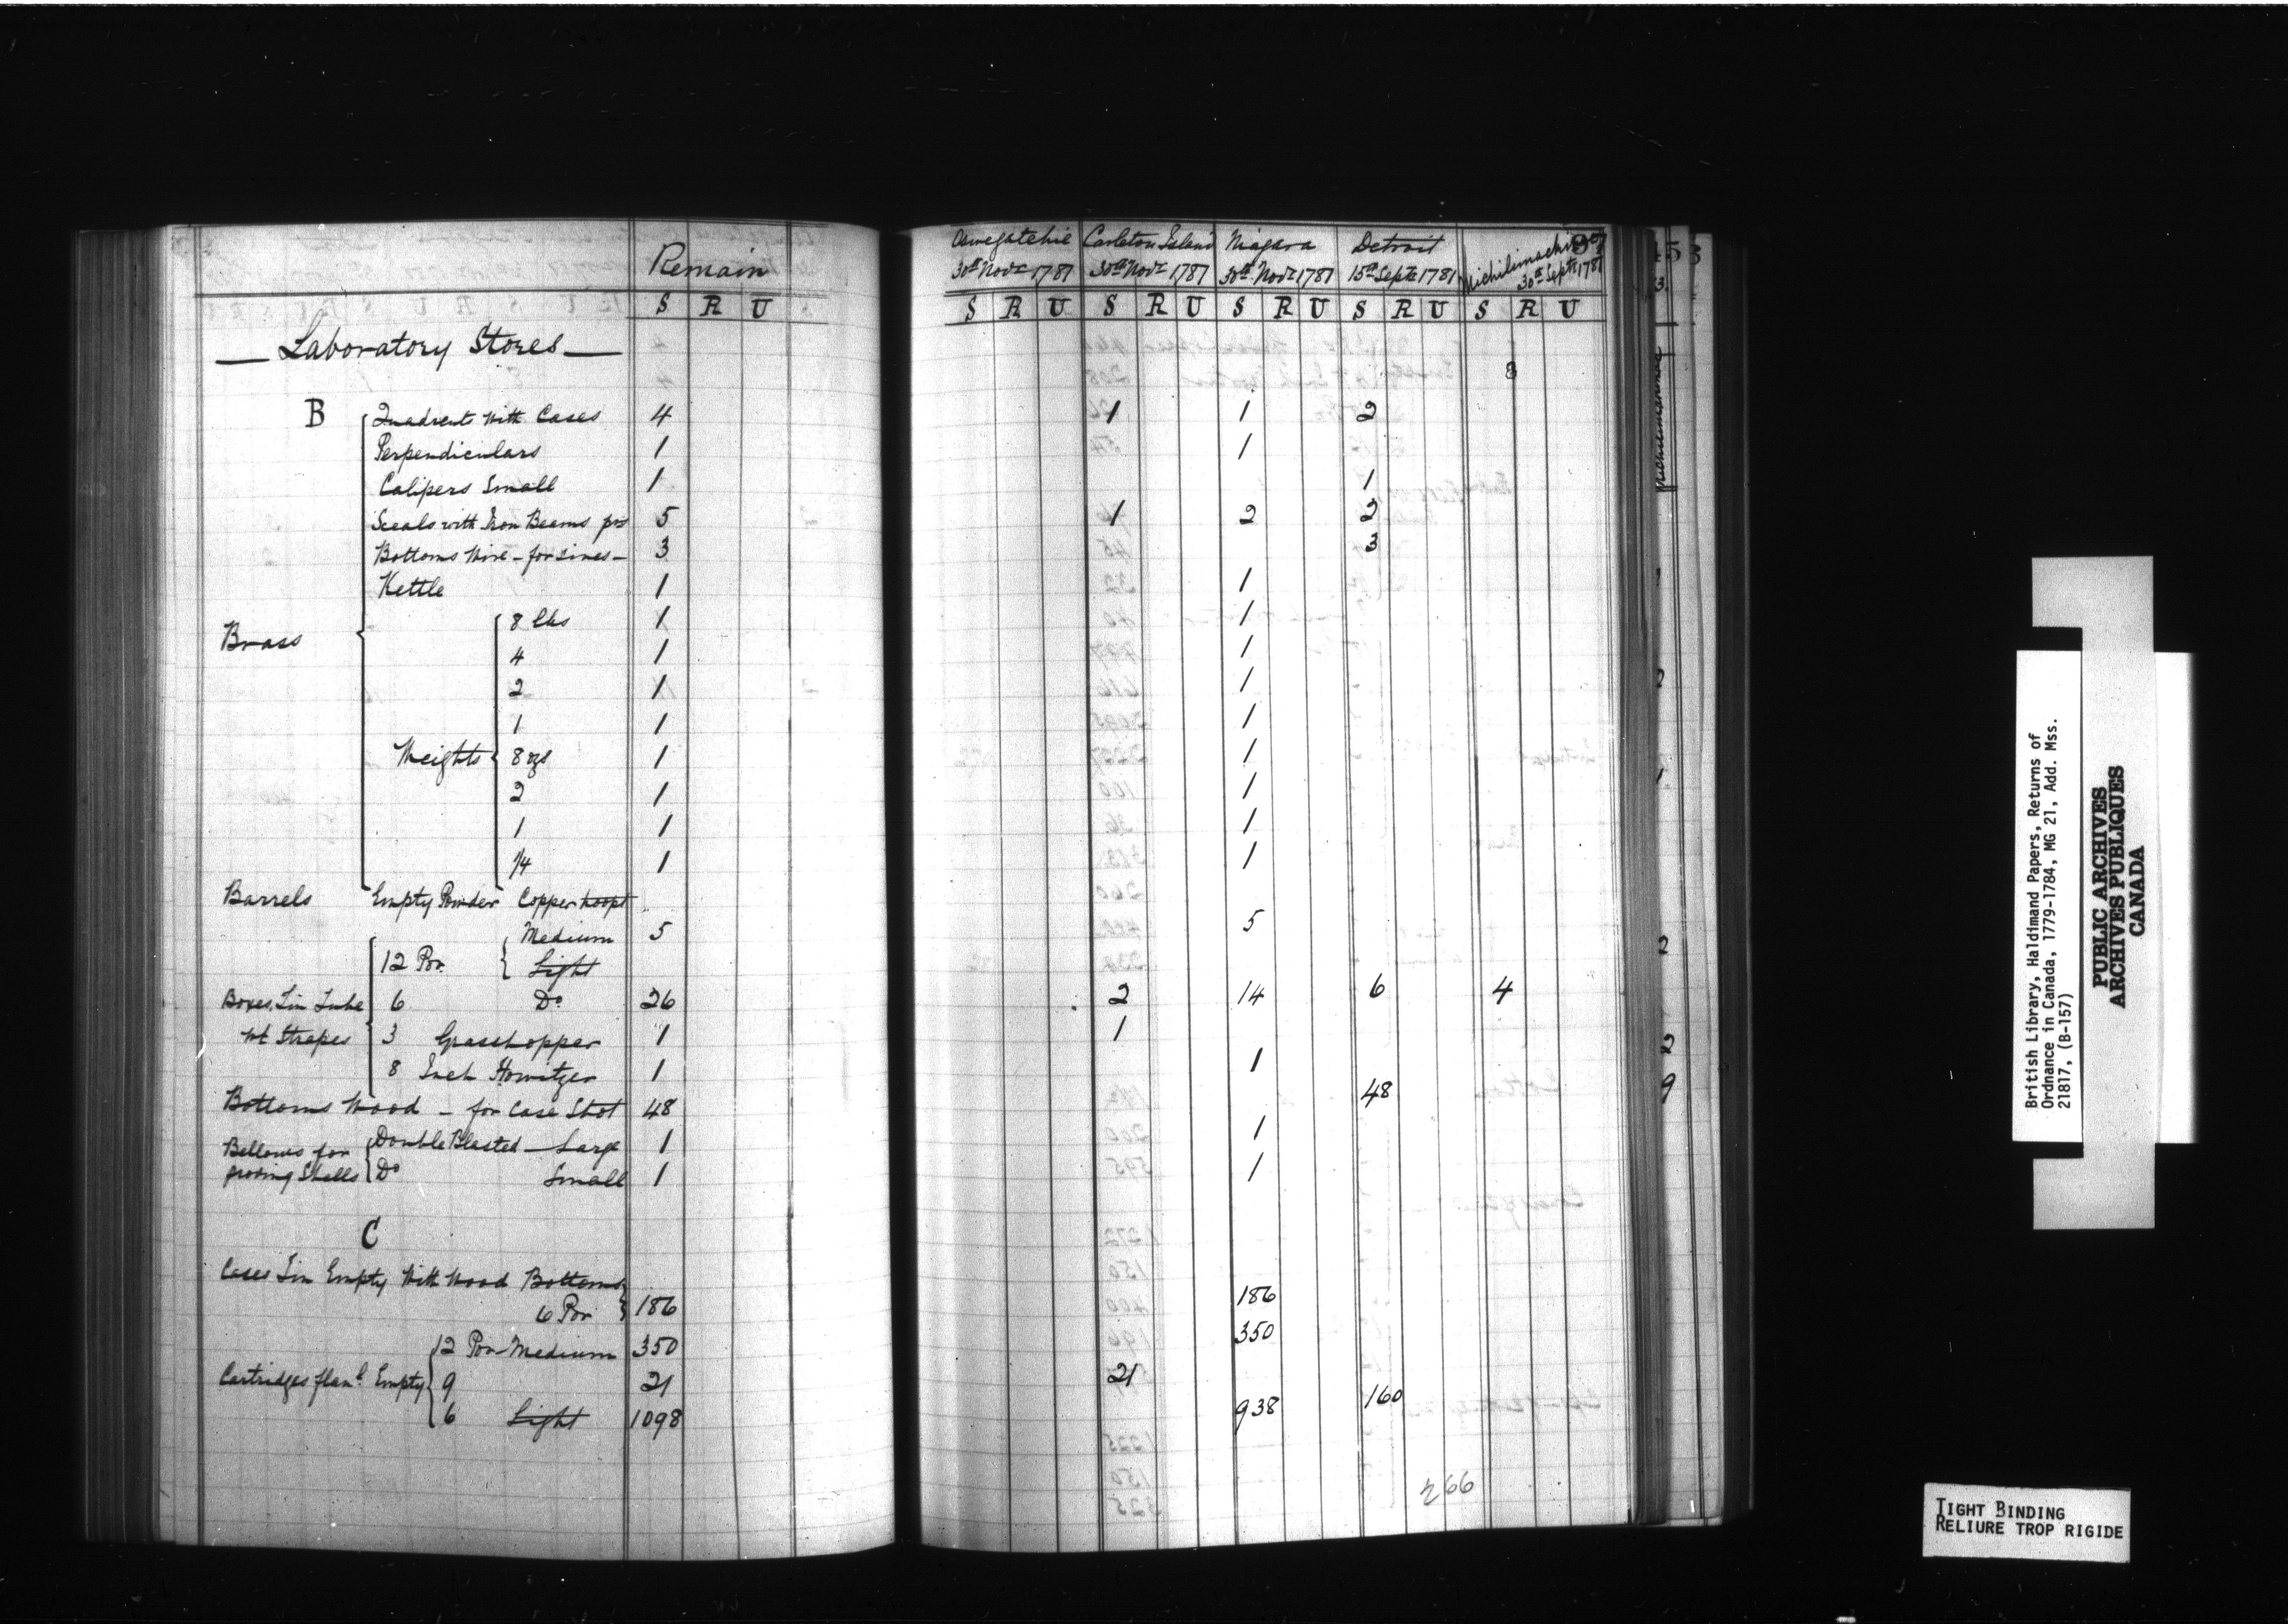 Remain
S R U
Laboratory Stores
B
Quadrents with Cases 4
Perpendiculars 1
Calipers Small 1
Sceals with Iron Beams prs 5
Bottoms Wire - for - 3
Kettle 1
Brass
8 lbs 1
4 1
2 1
1 1
Weights 8 ozs 1
2 1
1 1
1/4 1
Barrels Empty Powder Copper hoopt
12 Por. Medium 5
Light
Boxes, Tin Tube 6 Do 26
wt Strapes 3 Grasshopper 1
8 Inch Howitzer 1
Bottoms Wood - for Case Shot 48
Bellows for Double Blasted - Large 1
proving Shells Do Small 1
C
Cases Tin Empty With Wood Bottoms
6 Por 186
12 Por Medium 350
Cartridges flanl. Empty 9 21
6 Light 1098
Oswegatchie Carleton Island Niagara Detroit Michilimachinac
30th Novr 1781 30th Novr 1781 30th Novr 1781 15th Septr 1781 30th Septr 1781
S R U S R U S R U S R U S R U
8
1 1 2
1
1
1 2 2
3
1
1
1
1
1
1
1
1
1
5
2 14 6 4
1
1
48
1
1
186
350
21
938 160
266
British Library, Haldimand Papers, Returns of
Ordnance in Canada, 1779-1784, MG 21, Add. Mss.
21817, (B-157)
PUBLIC ARCHIVES
ARCHIVES PUBLIQUES
CANADA
TIGHT BINDING
RELIURE TROP RIGIDE